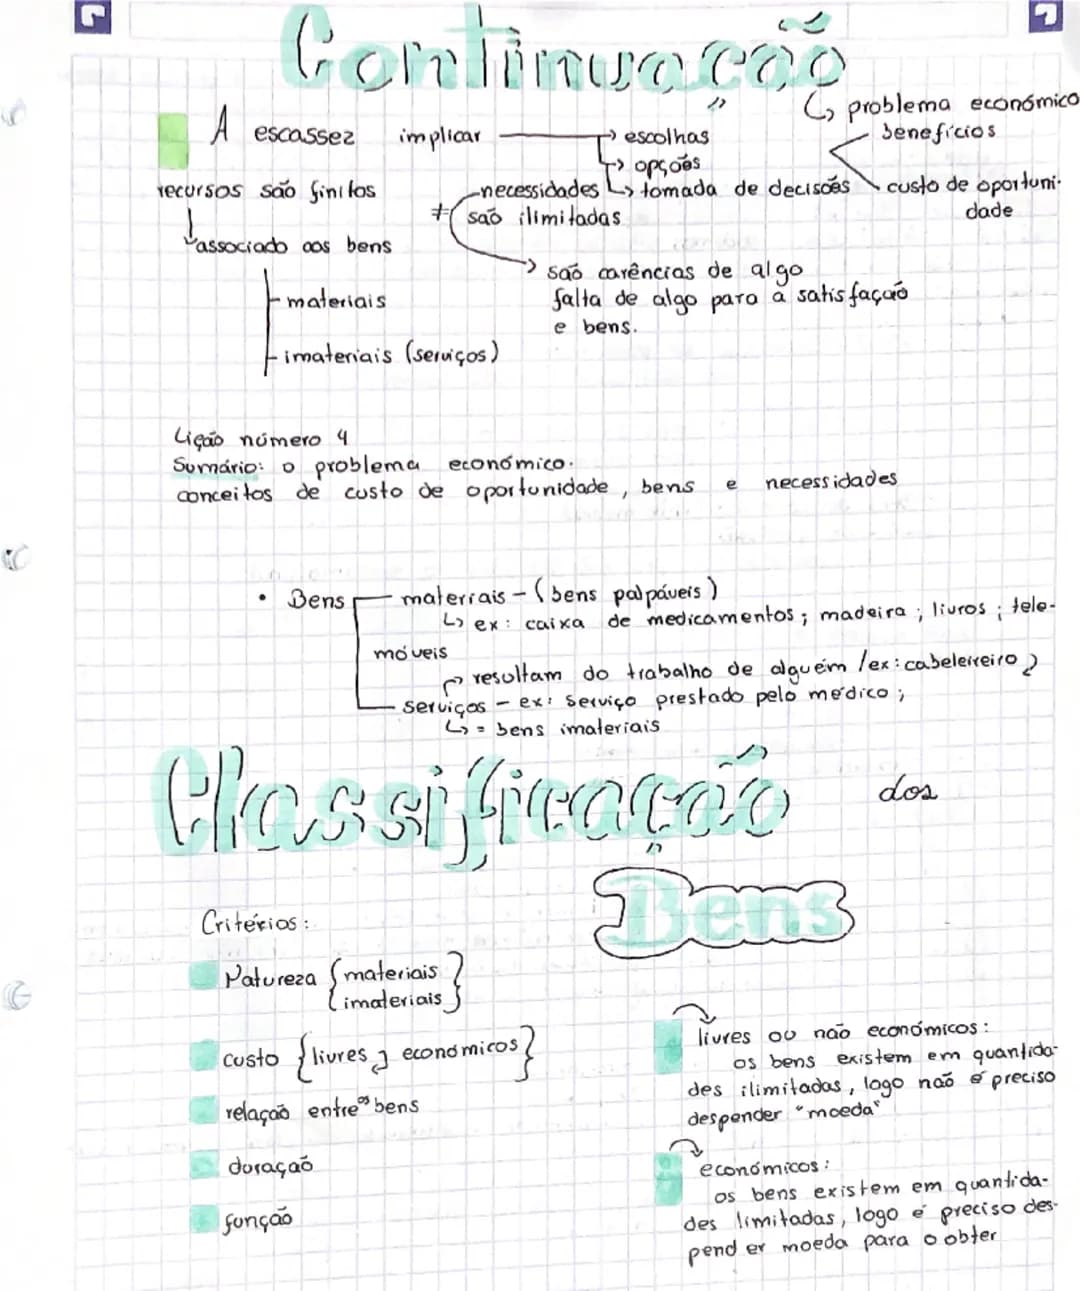 Continuação
↳ problema económico
A escassez implicar → escolhas
benefícios
↳ opções
recursos são finitos
necessidades ↳ tomada de decisões
custo de oportuni-
dade
≠ são ilimitadas
associado aos bens
→ são carências de algo
falta de algo para a satisfação
e bens.
materiais
imateriais (serviços)
Lição número 4
Sumário: o problema económico.
conceitos de custo de oportunidade, bens e necessidades
• Bens
materiais - (bens palpáveis)
↳ ex: caixa de medicamentos; madeira; livros; tele-
móveis
resultam do trabalho de alguém /ex: cabeleireiro)
serviços - ex: serviço prestado pelo médico;
↳ = bens imateriais
Classificação dos
Bens
Critérios:
Natureza {materiais
imateriais}
custo {livres e económicos}
relação entre os bens
duração
função
livres ou não económicos:
os bens existem em quantida-
des ilimitadas, logo não é preciso
despender "moeda"
económicos:
os bens existem em quantida-
des limitadas, logo é preciso des-
pender moeda para o obter